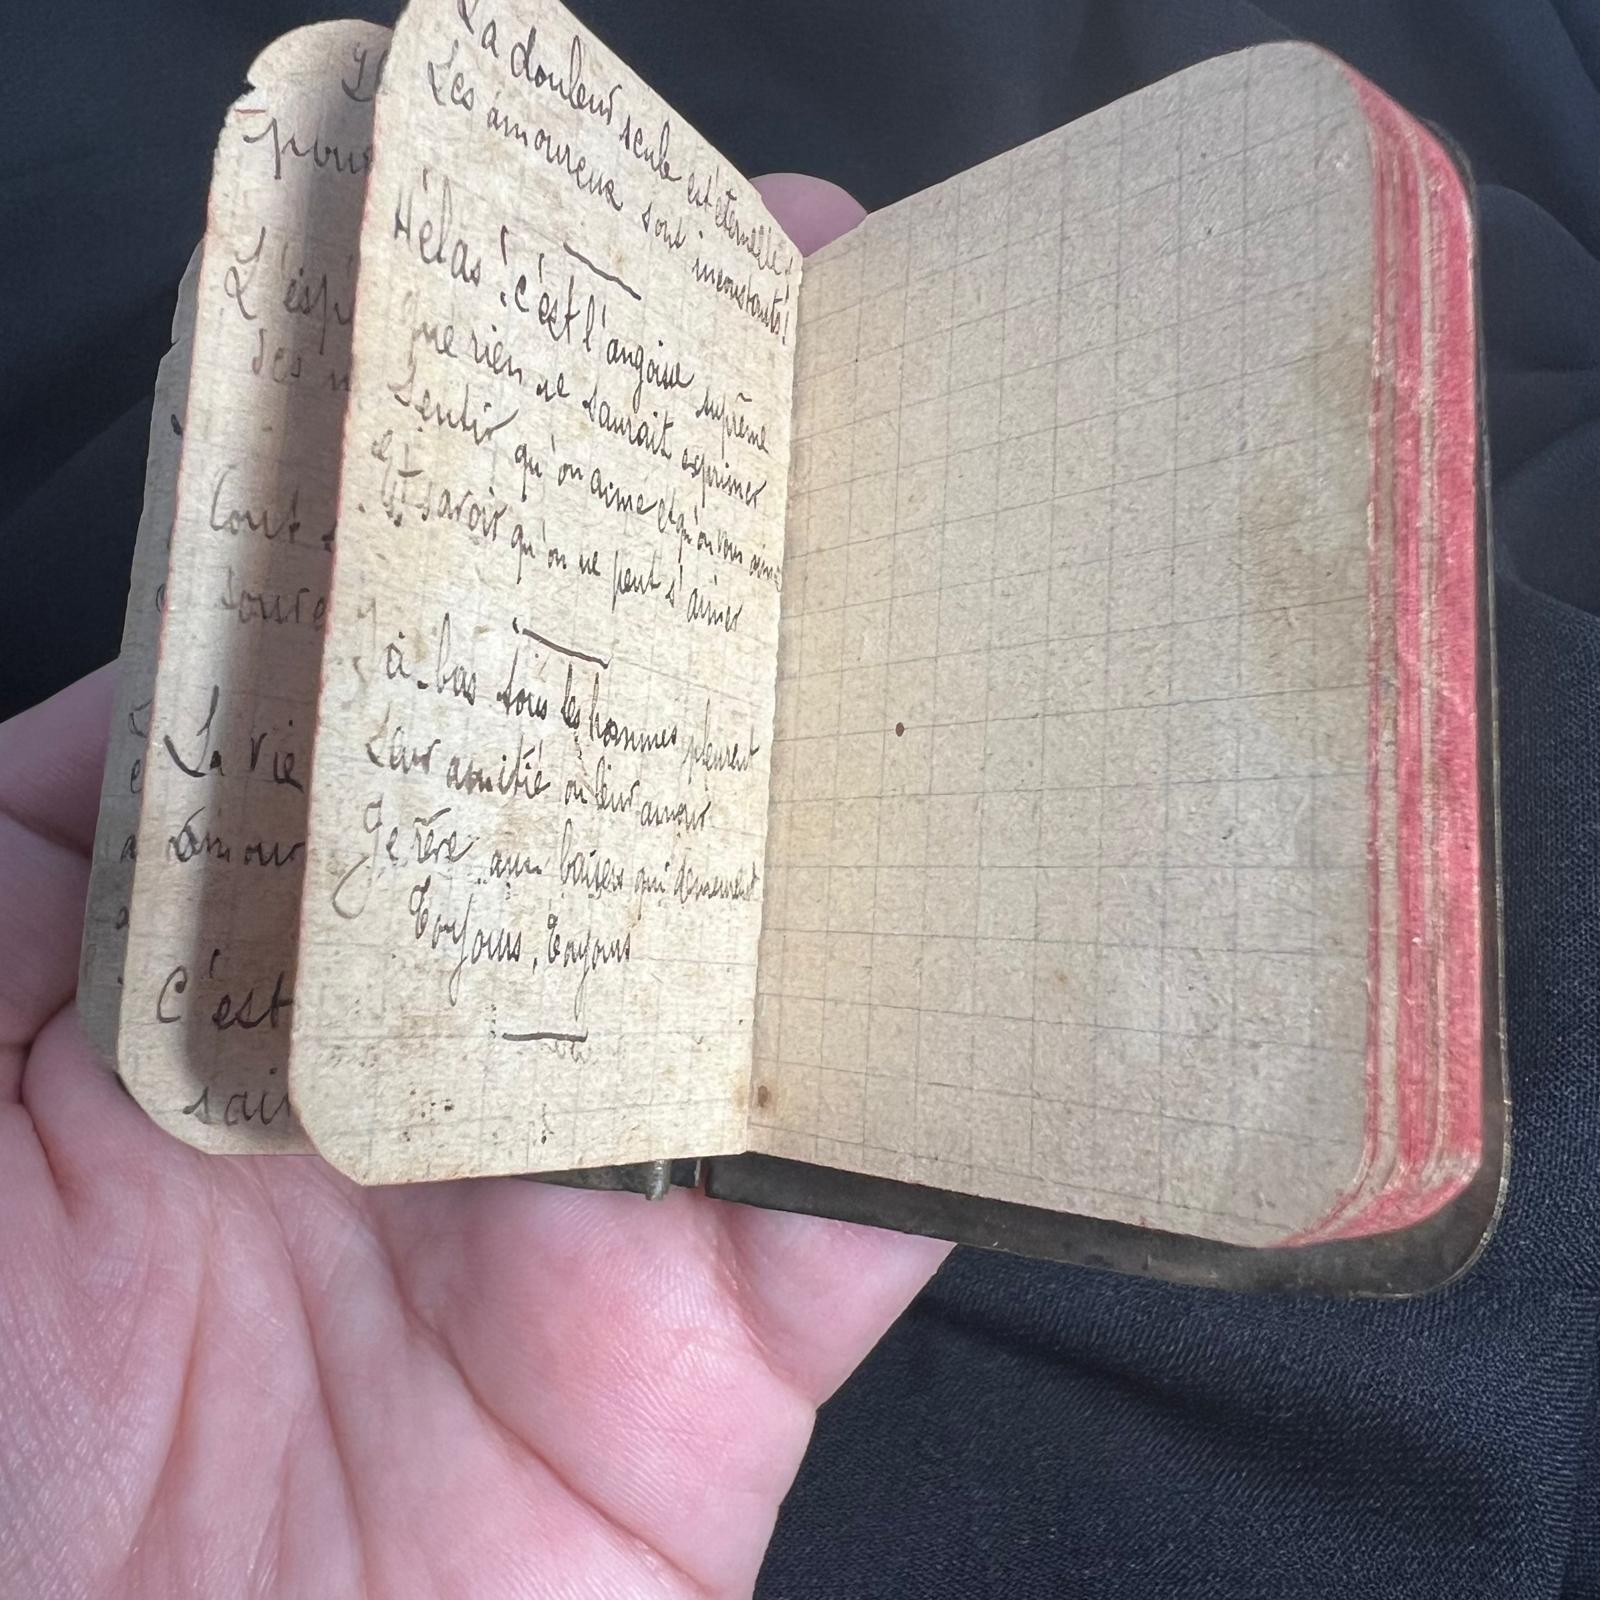 La douleur seule est éternelle!
Les amoureux sont inconstants!
Hélas! c'est l'angoisse suprême
que rien ne saurait exprimer
Sentir qu'on aime et qu'on vous aime
et
Et savoir qu'on ne peut s'aimer
à-bas tous les hommes pleurent
Leur amitié ou leur amour
Je rêve aux baisers qui demeurent
Toujours, Toujours
pour
L'espé
des
tout
La vie
amour
C'est